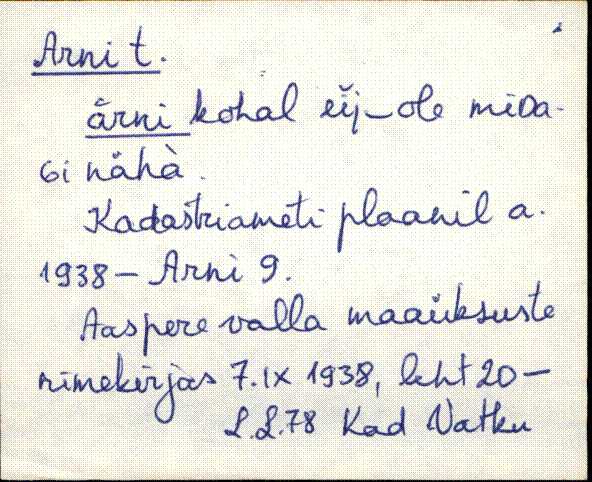 Arni t.
ärni kohal eij-ole miDa-
Gi nähà.
Kadastriameti plaanil a.
1938 - Arni 9.
Aaspere valla maaüksuste
nimekirjas 7.IX 1938, leht 20 -
L.L.78 Kad Vatku